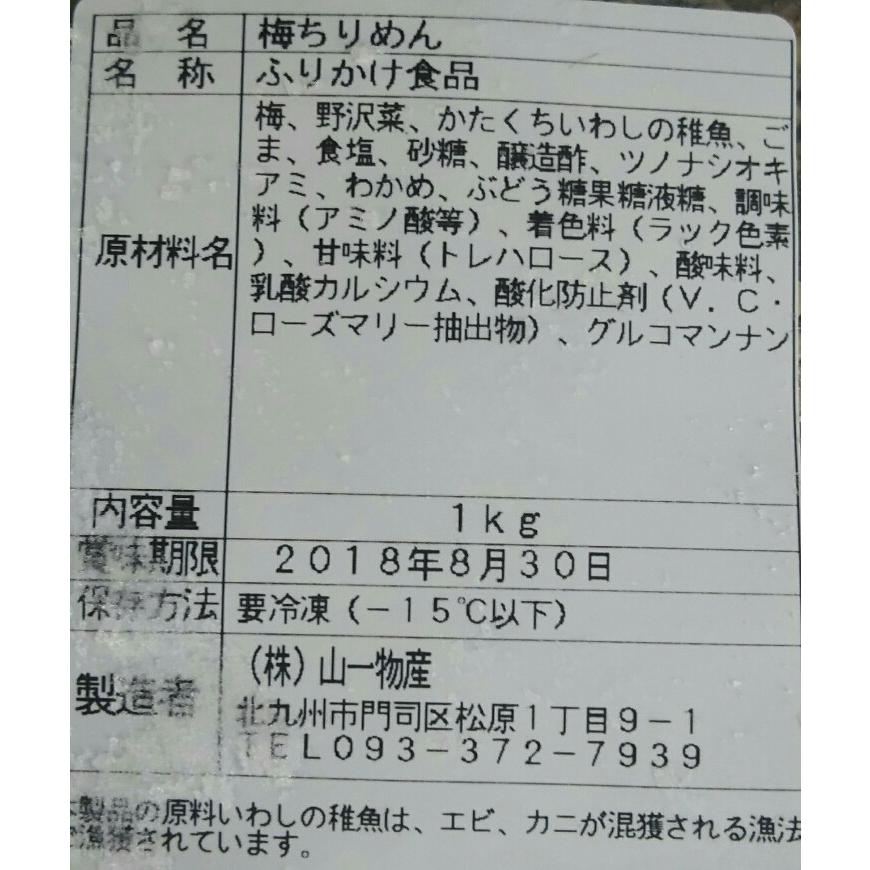 品名 梅ちりめん
名称 ふりかけ食品
原材料名
梅、野沢菜、かたくちいわしの稚魚、ご
ま、食塩、砂糖、醸造酢、ツノナシオキ
アミ、わかめ、ぶどう糖果糖液糖、調味
料(アミノ酸等)、着色料(ラック色素
)、甘味料(トレハロース)、酸味料、
乳酸カルシウム、酸化防止剤(V.C・
ローズマリー抽出物)、グルコマンナン
内容量 1kg
賞味期限 2018年8月30日
保存方法 要冷凍(-15℃以下)
製造者
(株)山一物産
北九州市門司区松原1丁目9-1
TEL093-372-7939
本製品の原料いわしの稚魚は、エビ、カニが混獲される漁法
で漁獲されています。